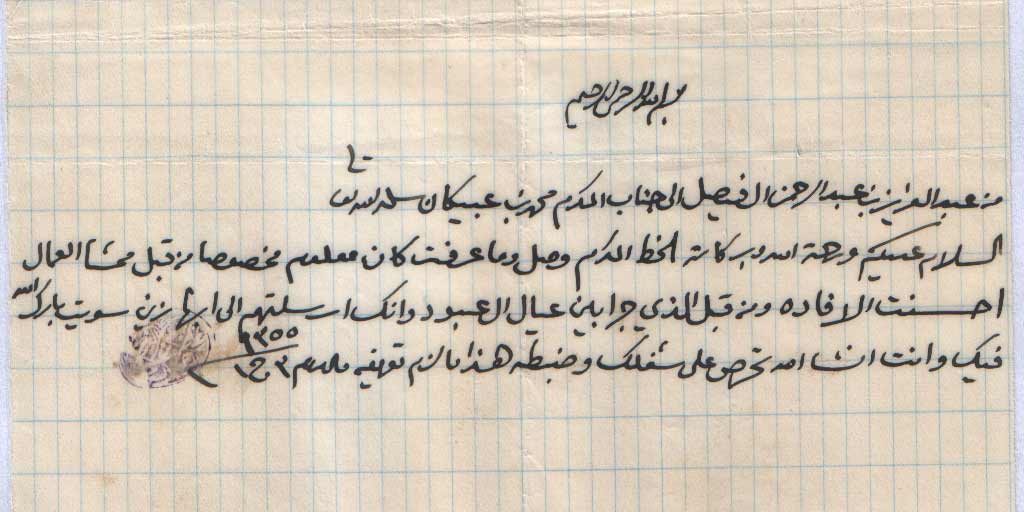 بسم الله الرحمن الرحيم
من عبد العزيز بن عبد الرحمن ال فيصل الى جناب المكرم محمد بن عبيكان سلمه الله تعالى
السلام عليكم ورحمة الله وبركاته الخط المكرم وصل وما عرفت كان معلوم مخصوصا من قبل ممشا العمال
احسنت الافاده ومن قبل الذي جرا بين عيال ال عبود وانك ارسلتهم الى ابها زين سويت بارك الله
فيك وانت انشا الله تحرص على شغلك وضبطه هذا ما لزم تعريفه والسلام ٣ ج ١٣٥٥